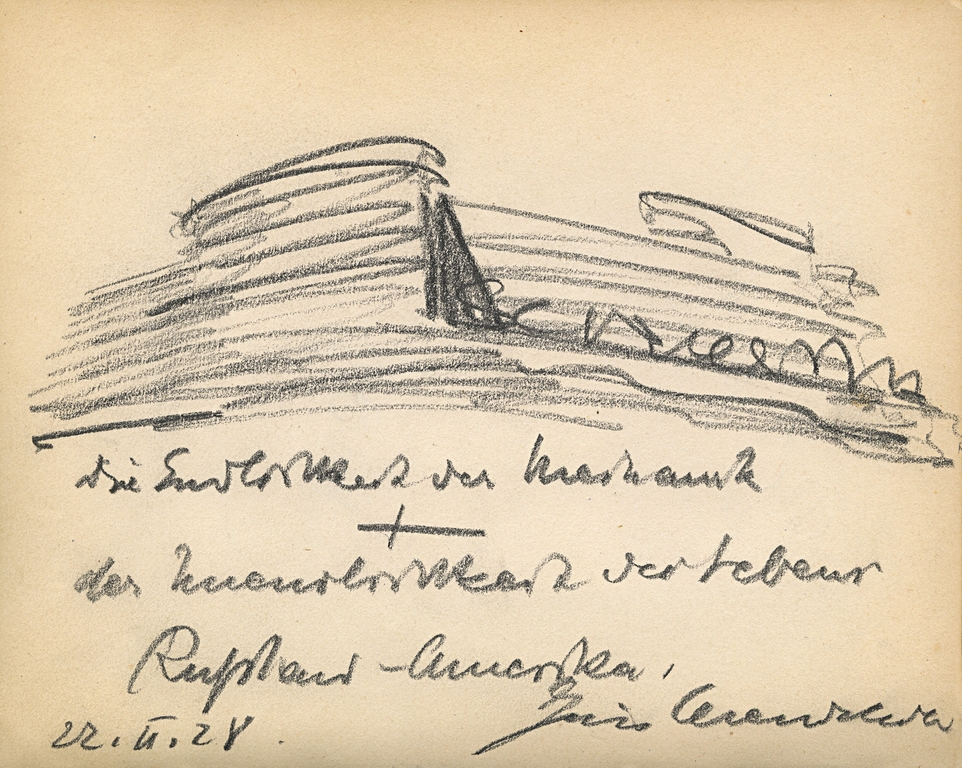 die Endlichkeit der Mechanik
+
der Unendlichkeit des Lebens
Rußland - Amerika,
22.II.28.